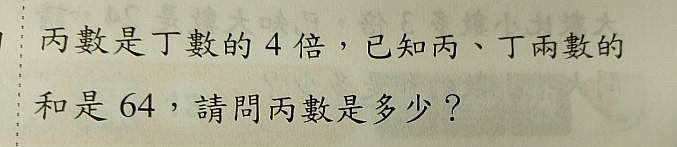 丙數是丁數的 4 倍，已知丙、丁兩數的
和是 64，請問丙數是多少？